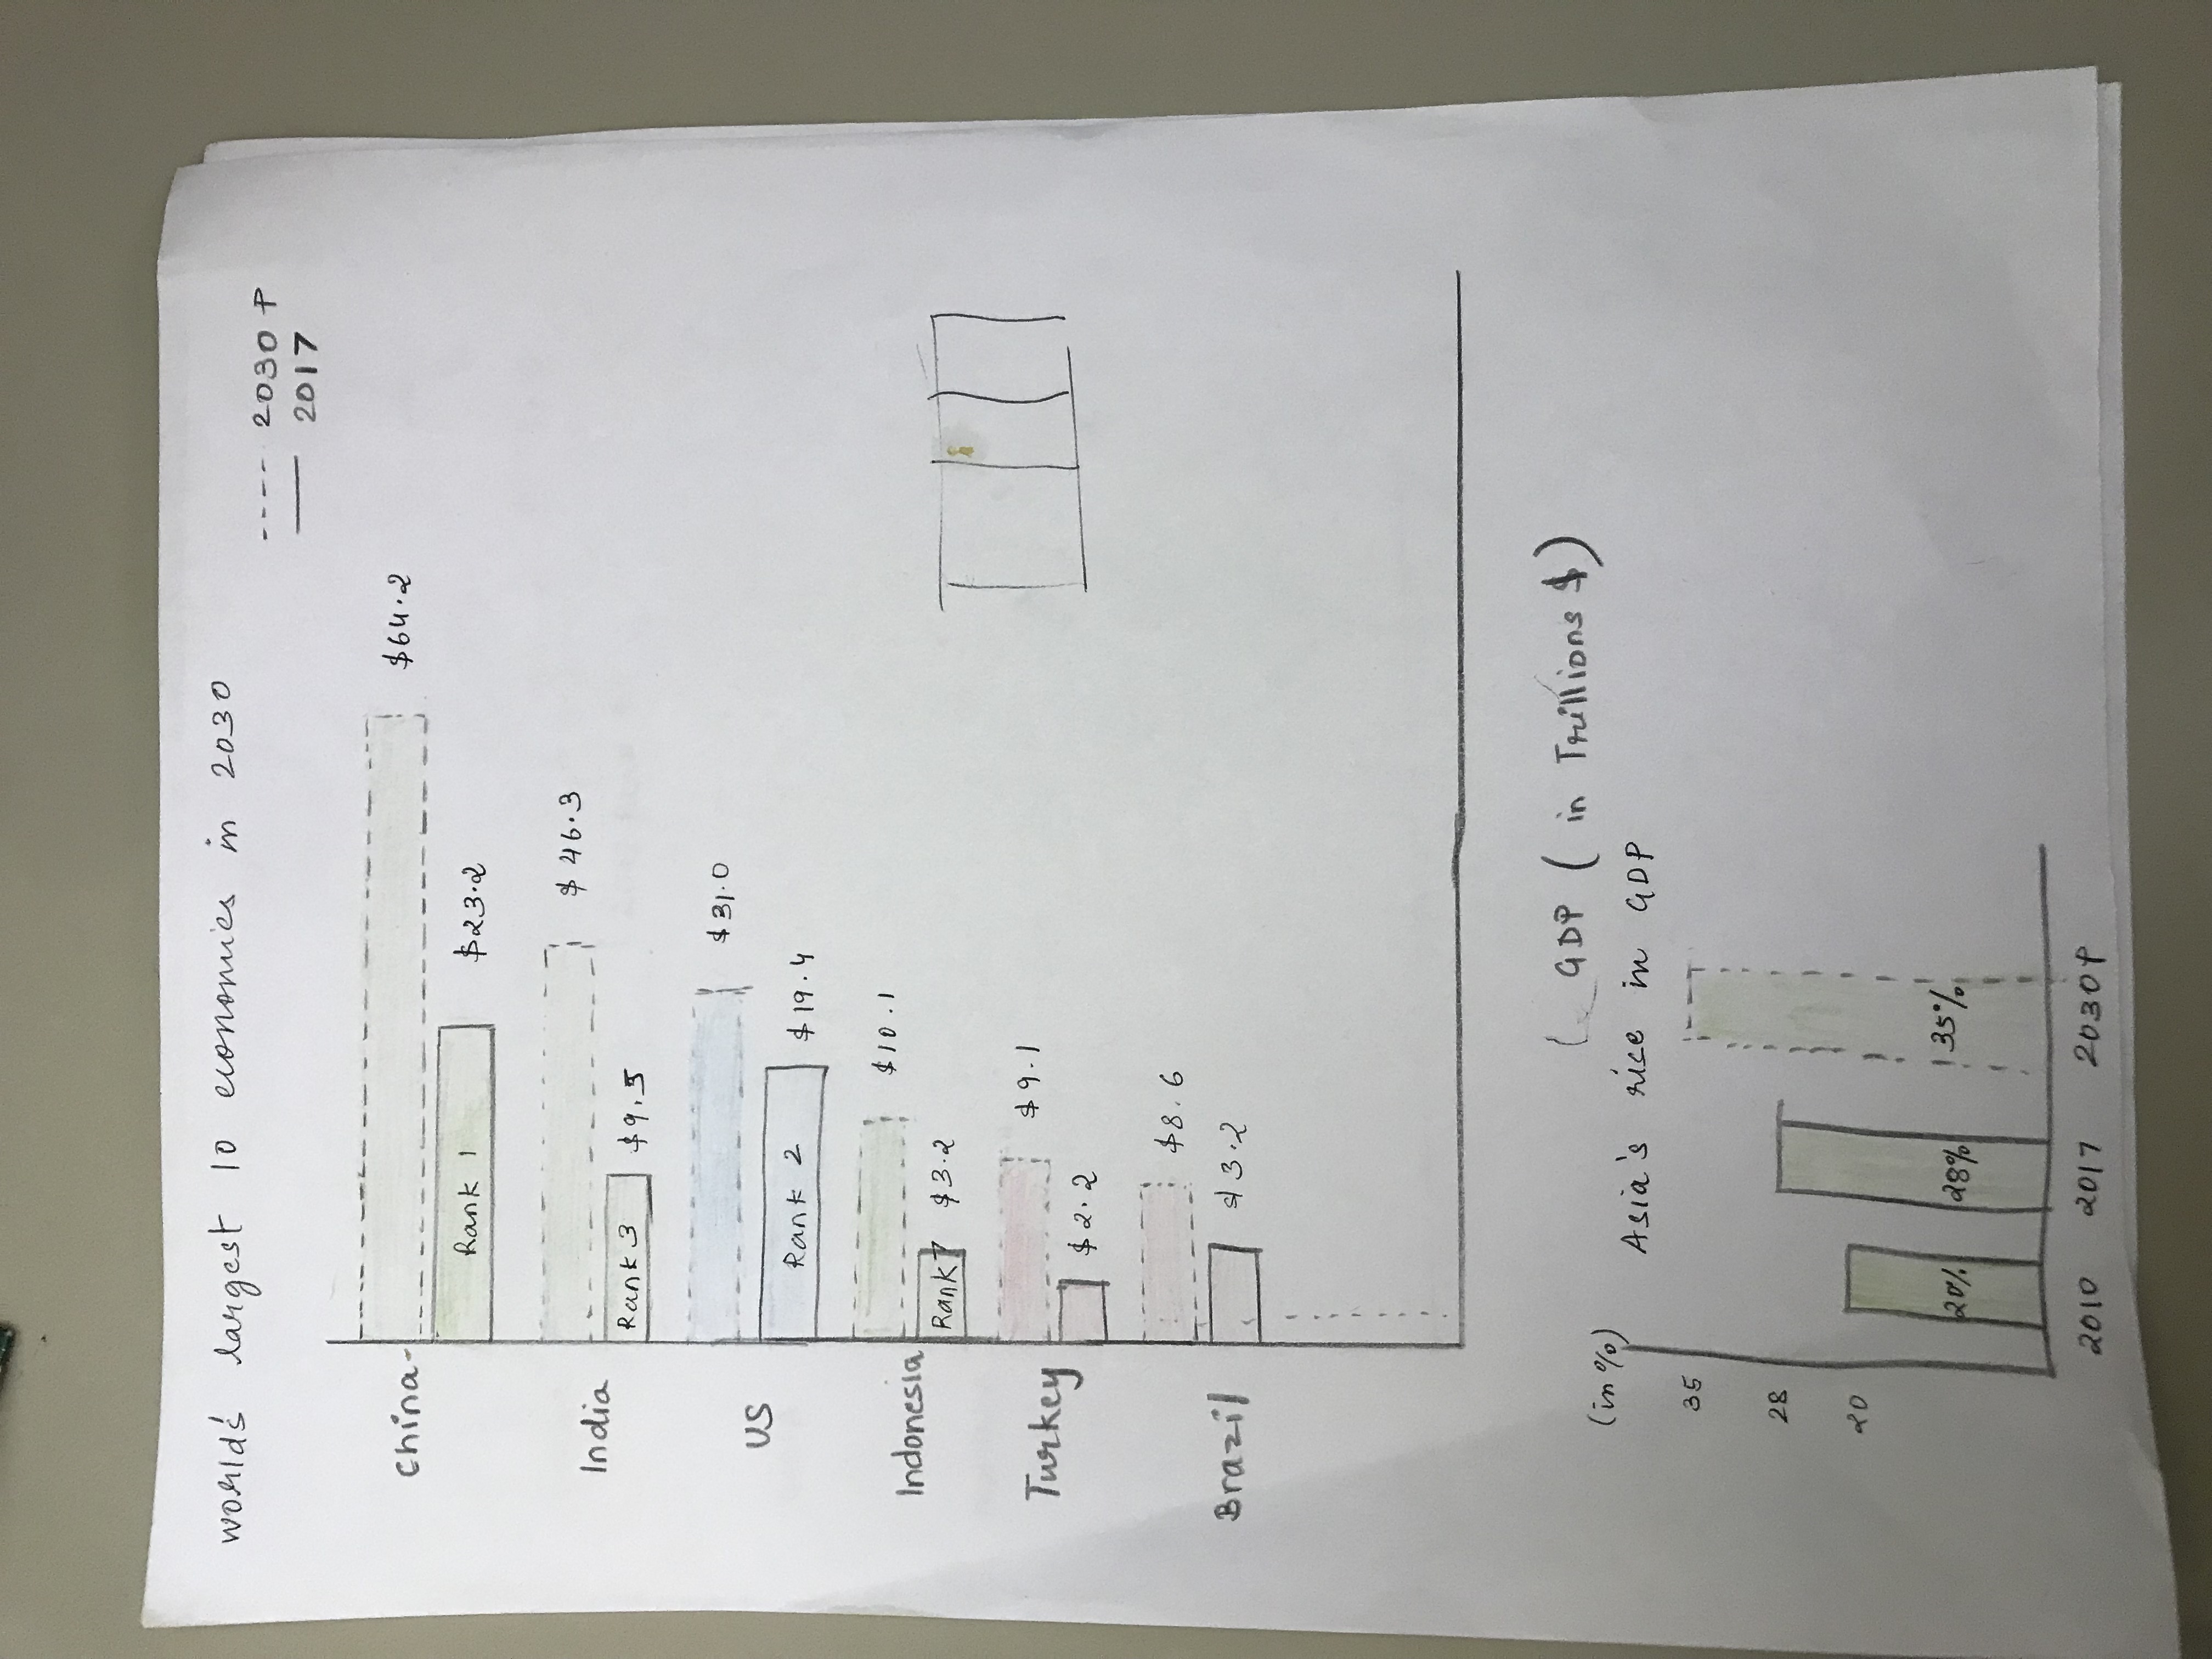 world's largest 10 economies in 2030
---- 2030 P
— 2017
China
$64.2
Rank 1 $23.2
India
$46.3
Rank 3 $9.5
$31.0
US
Rank 2 $19.4
$10.1
Indonesia
Rank 7 $3.2
$9.1
Turkey
$2.2
$8.6
Brazil $3.2
GDP (in Trillions $)
(in %)
Asia's rise in GDP
35
28
20
20% 28% 35%
2010 2017 2030P